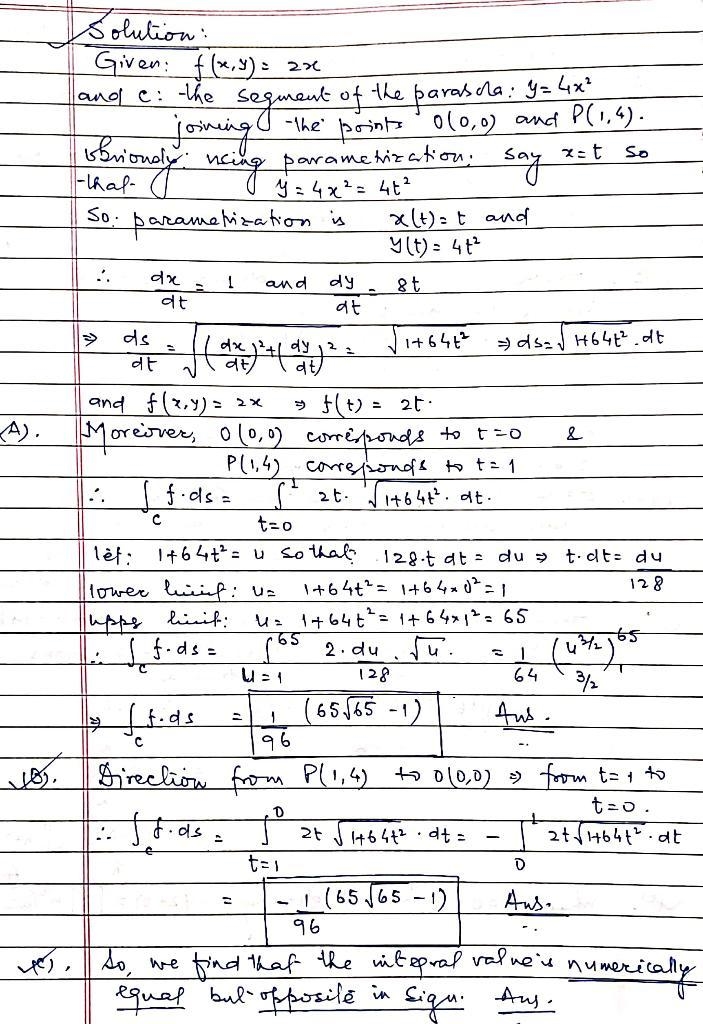 Solution:
Given: f(x,y) = 2x
and c: the segment of the parabola: y = 4x²
joining the points O(0,0) and P(1,4).
Obviously: using parametrization: say x=t so
that y = 4x² = 4t²
So: parametrization is x(t) = t and
y(t) = 4t²
∴ dx/dt = 1 and dy/dt = 8t
⇒ ds/dt = √((dx/dt)² + (dy/dt)²) = √(1+64t²) ⇒ ds = √(1+64t²) . dt
and f(x,y) = 2x ⇒ f(t) = 2t.
(A). Moreover, O(0,0) corresponds to t=0 &
P(1,4) corresponds to t=1
∴ ∫_C f.ds = ∫_{t=0}^{1} 2t. √(1+64t²). dt.
let: 1+64t² = u so that: 128.t dt = du ⇒ t.dt = du/128
lower limit: u = 1+64t² = 1+64×0² = 1
upps limit: u = 1+64t² = 1+64×1² = 65
∴ ∫_C f.ds = ∫_{u=1}^{65} 2.du/128 . √u. = 1/64 (u^{3/2} / 3/2)_1^{65}
⇒ ∫_C f.ds = 1/96 (65√65 - 1) Ans.
(B). Direction from P(1,4) to O(0,0) ⇒ from t=1 to
t=0.
∴ ∫_C f.ds = ∫_{t=1}^{0} 2t √(1+64t²) . dt = - ∫_0^1 2t √(1+64t²) . dt
= - 1/96 (65√65 - 1) Ans.
(C). So, we find that the integral value is numerically
equal but opposite in sign. Ans.